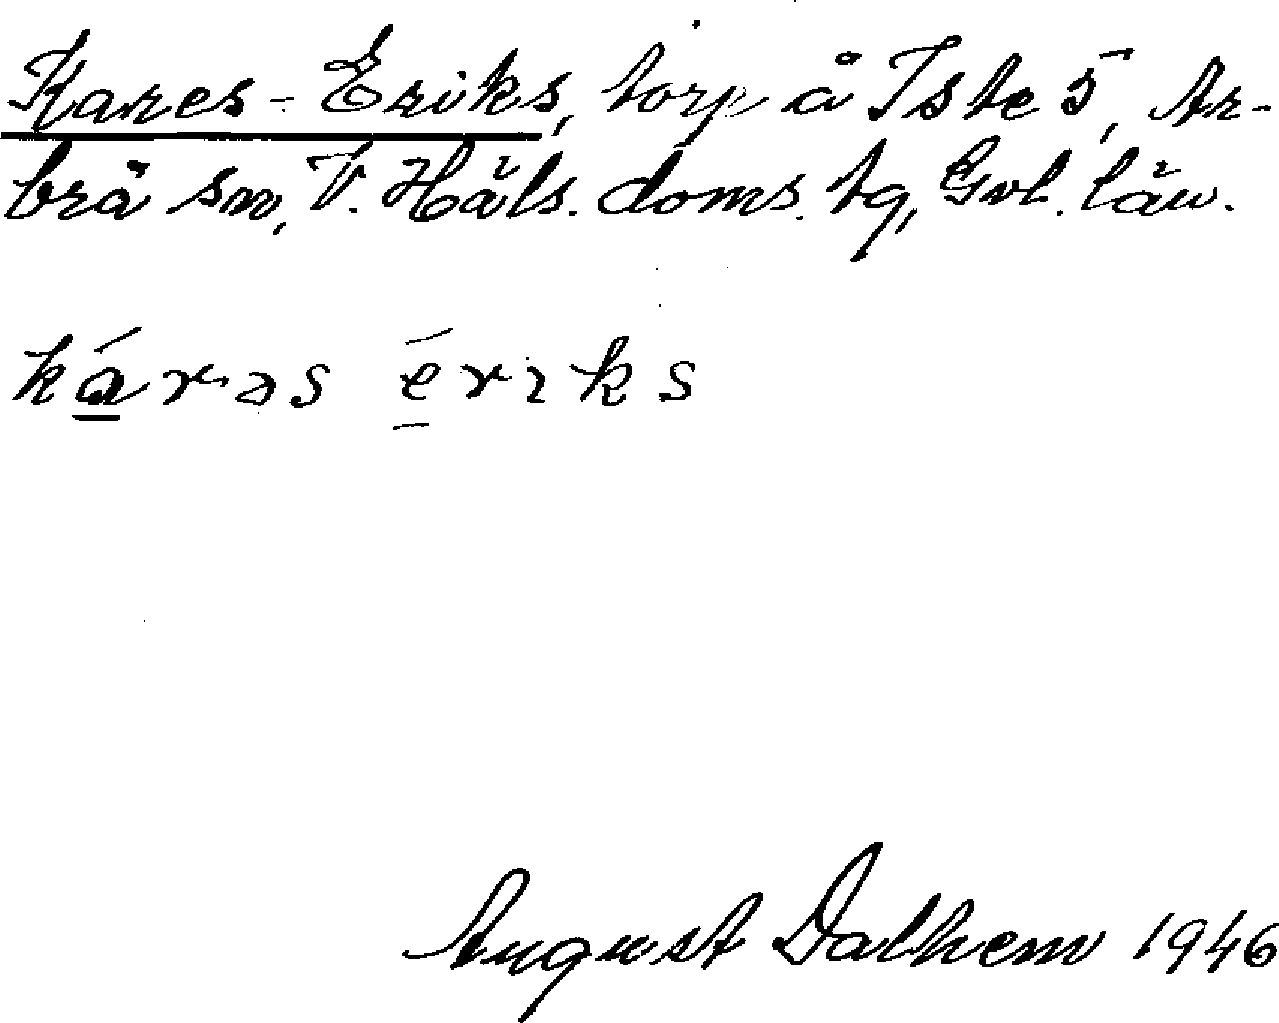 Kares-Eriks, torp å Iste 5, Ar-
brå sn, V. Häls. doms. tg, Gvl. län.
k̲árəs é̲rıks
August Dalhem 1946